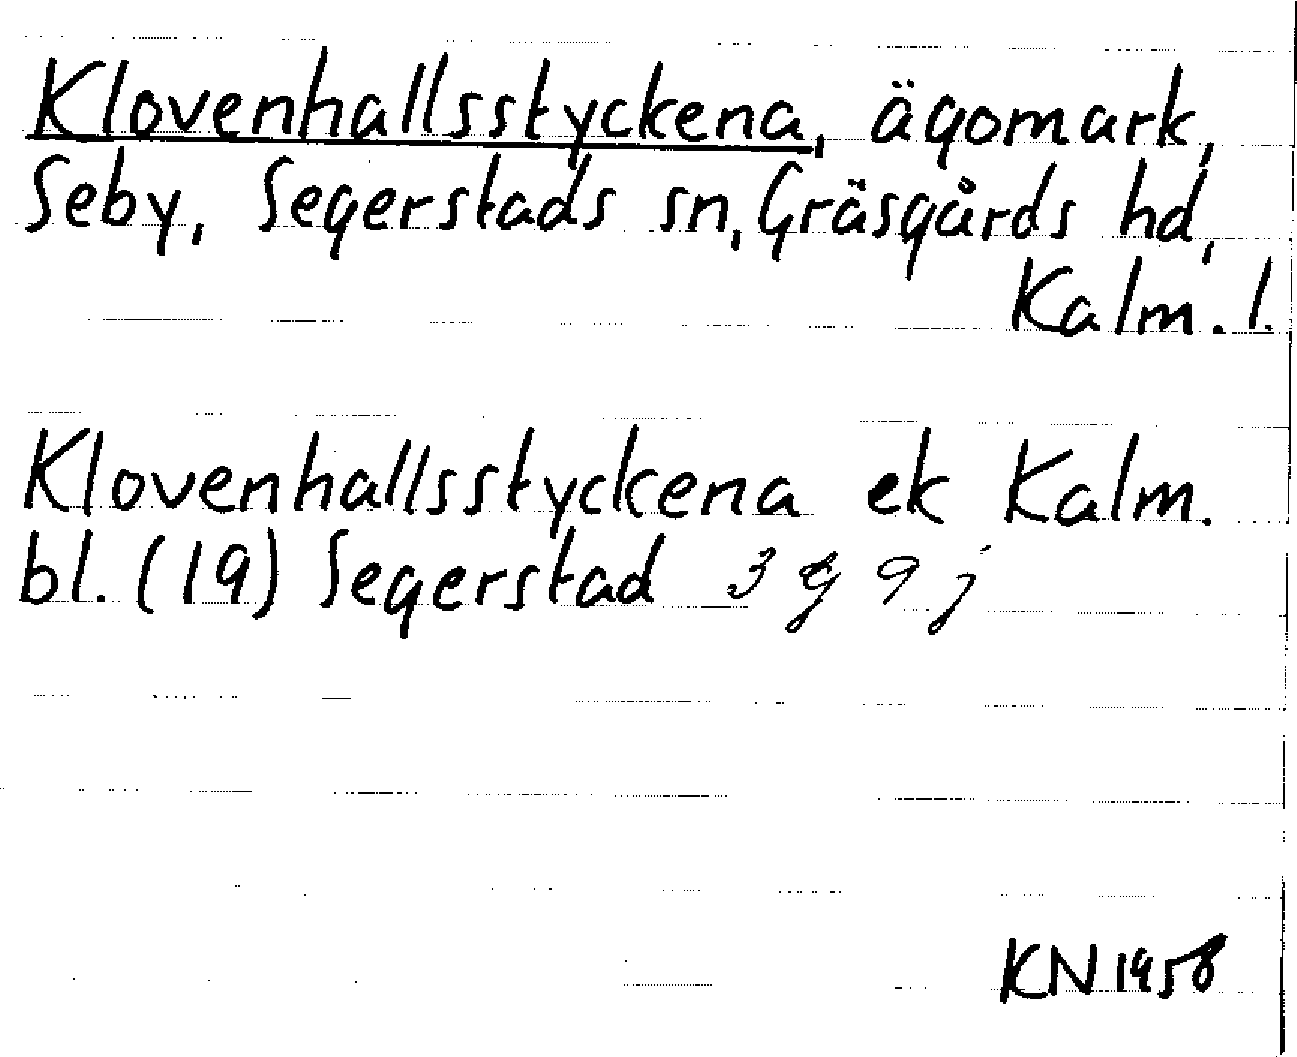 Klovenhallsstyckena, ägomark,
Seby, Segerstads sn, Gräsgårds hd,
Kalm. l.
Klovenhallsstyckena ek Kalm.
bl. (19) Segerstad 3 g 9 j
KN 1958